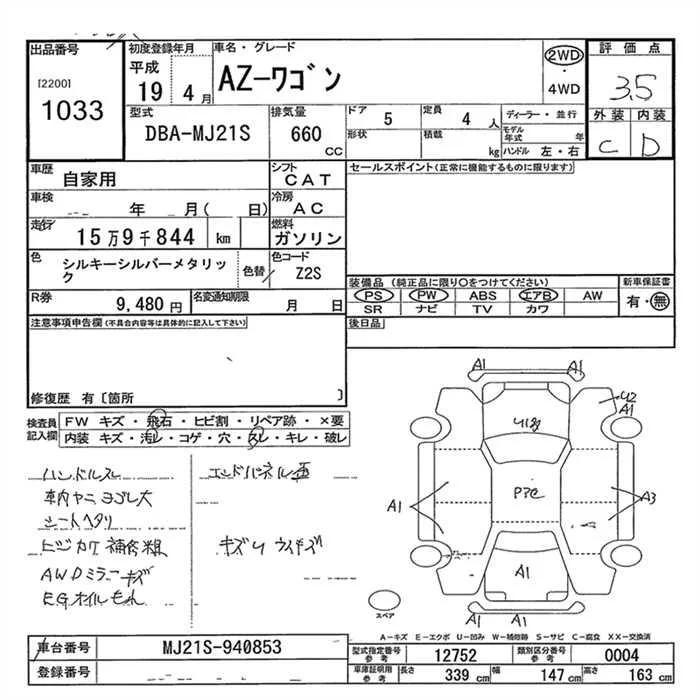 出品番号
[2200]
1033
初度登録年月
平成
19 4 月
車名・グレード
AZ-ワゴン
2WD
・
4WD
評価点
3.5
外装 内装
C D
型式
DBA-MJ21S
排気量
660
CC
ドア 5
定員 4 人
形状
積載 kg
ディーラー・並行
モデル年式 年
ハンドル 左・右
車歴 自家用
シフト CAT
車検 年 月( 日)
冷房 AC
走行 15万9千844 km
燃料 ガソリン
色 シルキーシルバーメタリック
色替
色コード Z2S
R券 9,480 円
名変通知期限 月 日
セールスポイント(正常に機能するものに限ります)
装備品 (純正品に限り○をつけてください)
新車保証書
PS PW ABS エアB AW
有・無
SR ナビ TV カワ
後日品
注意事項申告欄(不具合内容等は具体的に記入して下さい)
修復歴 有〔箇所 〕
検査員記入欄
FW キズ・飛石・ヒビ割・リペア跡・×要
内装 キズ・汚レ・コゲ・穴・スレ・キレ・破レ
ハンドルスレ
車内ヤニヨゴレ大
シートヘタリ
ヒジカケ補修跡
AWDミラーキズ
EGオイルもれ
エンドパネル歪
キズUウイキズ
A1 A1
U2
A1
A1
A3
A1
A1 A1
スペア
A-キズ E-エクボ U-凹み W-補修跡 S-サビ C-腐食 XX-交換済
車台番号 MJ21S-940853
登録番号
型式指定番号 参考 12752
類別区分番号 参考 0004
車庫証明用 参考 長さ 339 cm 幅 147 cm 高さ 163 cm